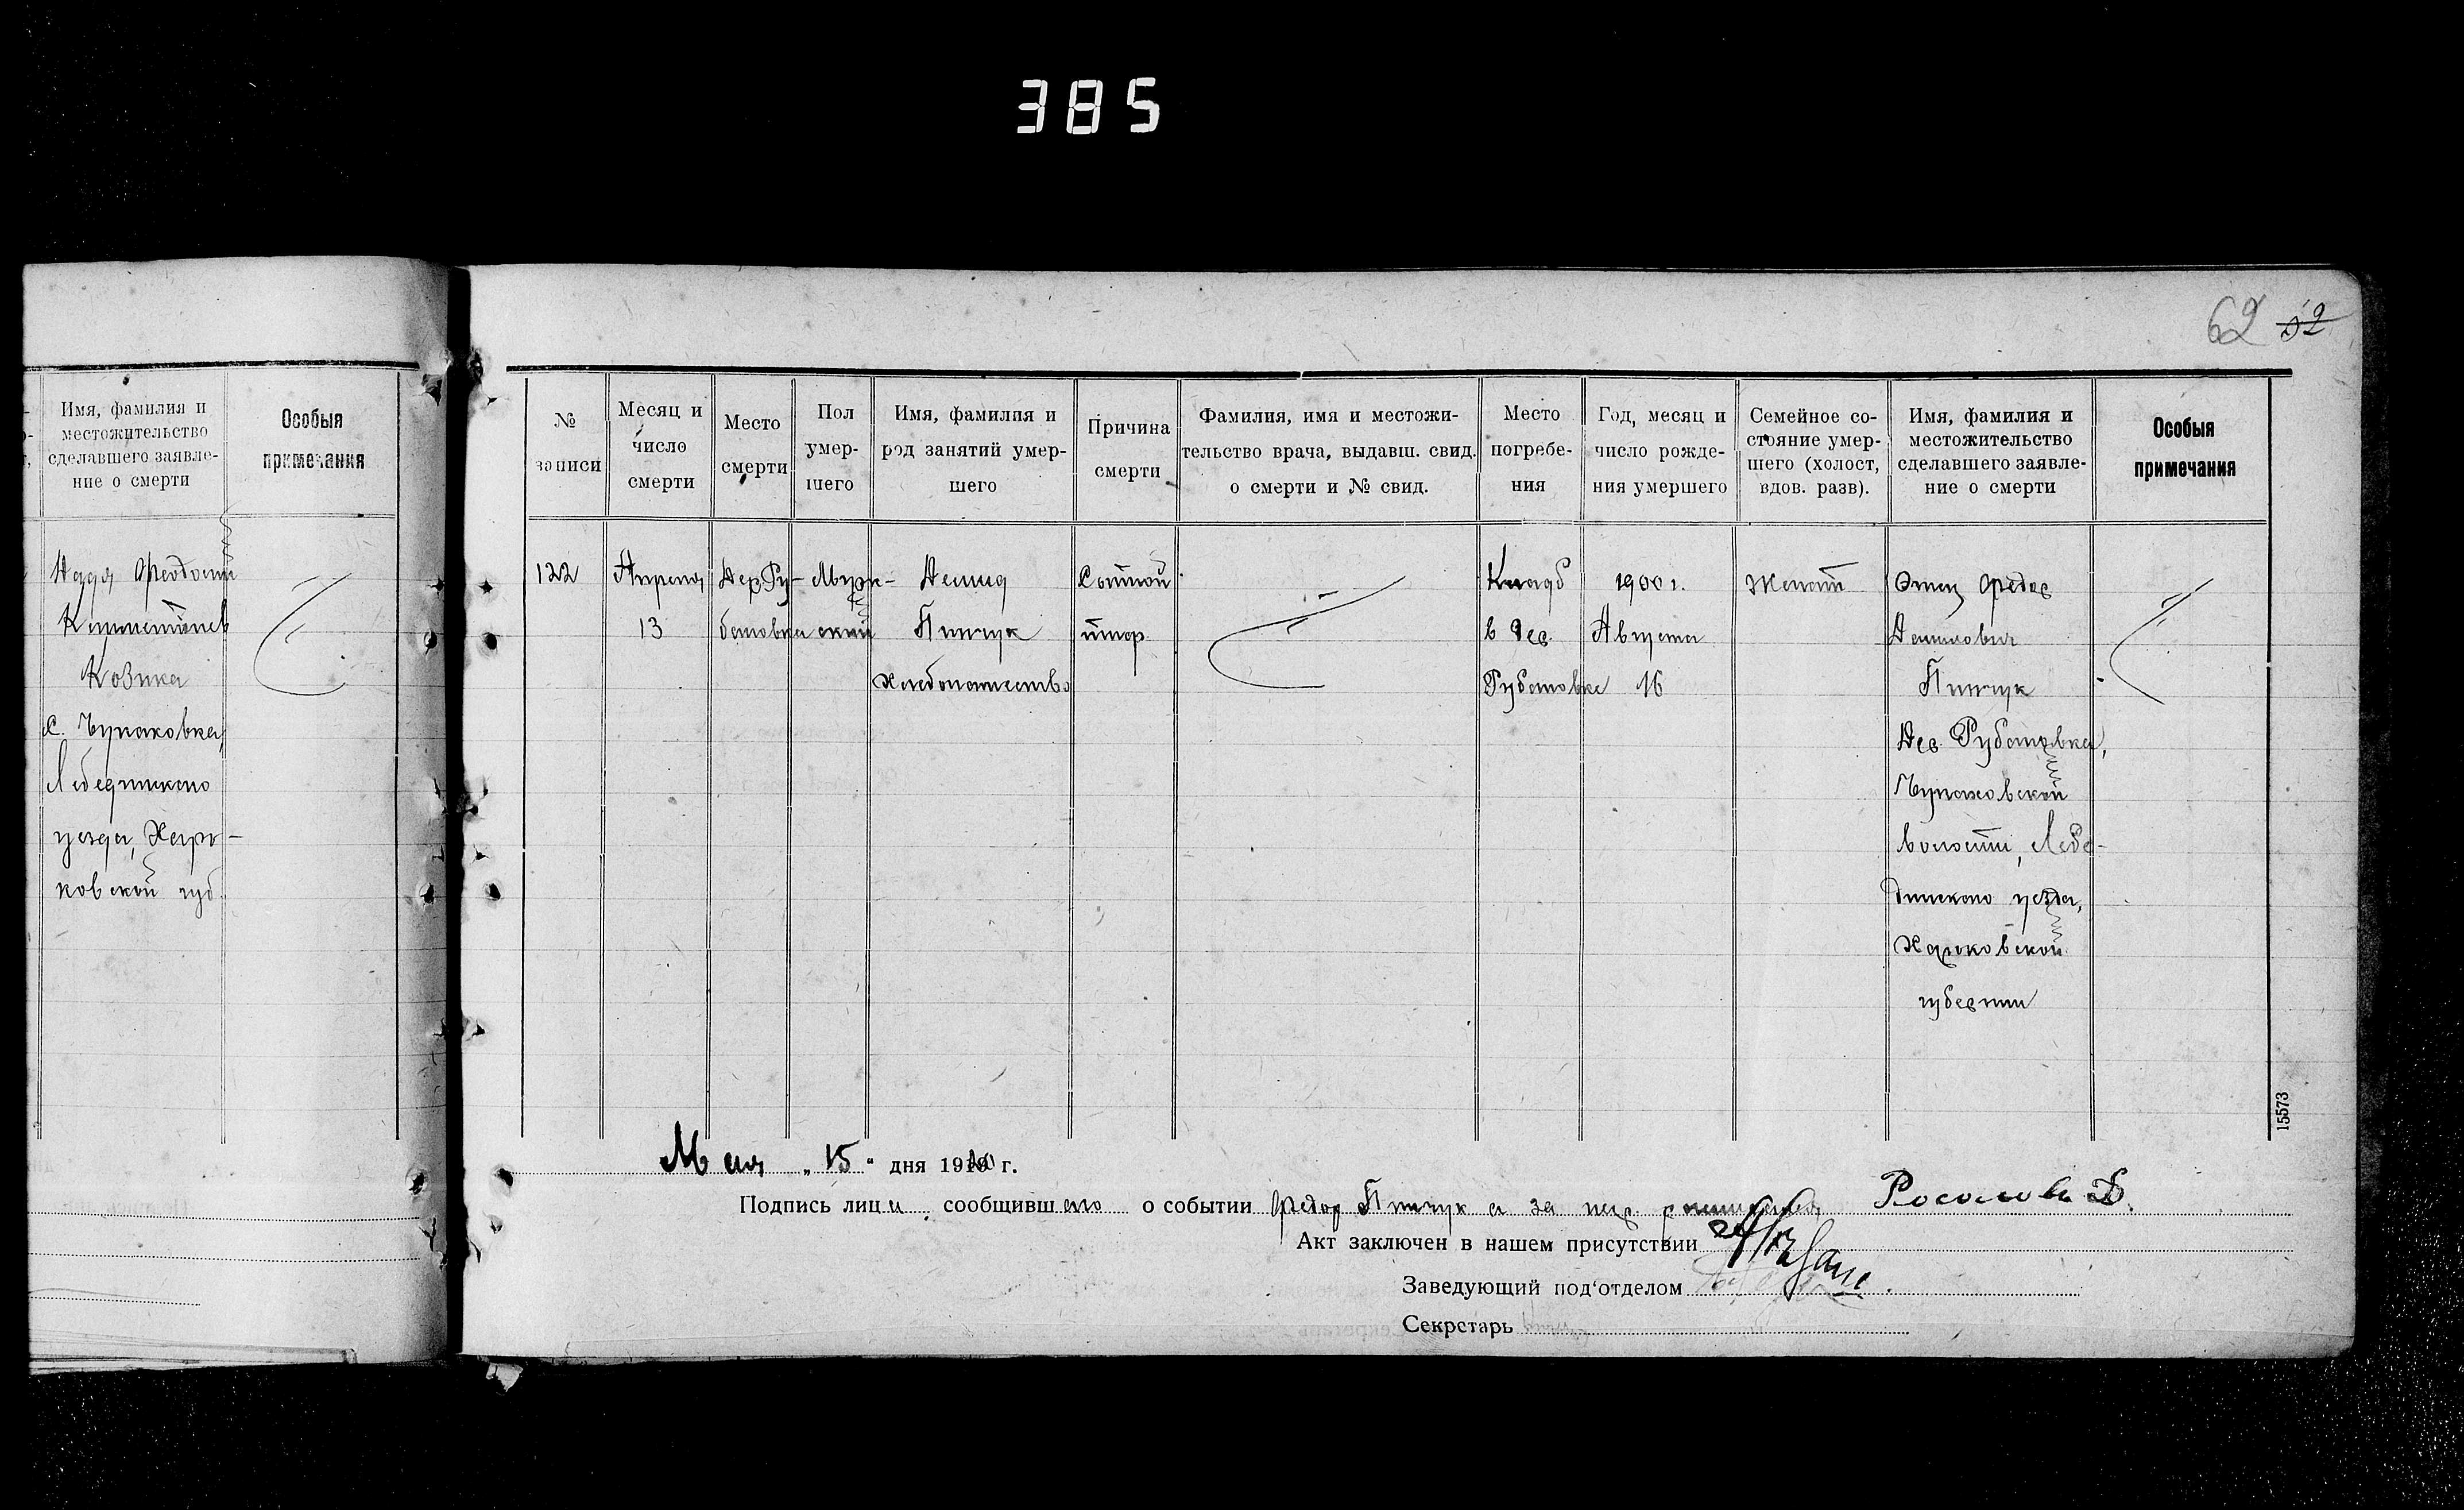 385
62 52
Имя, фамилия и
местожительство
сделавшего заявле-
ние о смерти
Особыя
примечания
Дядя Феодосий
Козика
с. Чупаховка,
Лебединского
уезда, Харь-
ковской губ.
№
записи
Месяц и
число
смерти
Место
смерти
Пол
умер-
шего
Имя, фамилия и
род занятий умер-
шего
Причина
смерти
Фамилия, имя и местожи-
тельство врача, выдавш. свид.
о смерти и № свид.
Место
погребе-
ния
Год, месяц и
число рожде-
ния умершего
Семейное со-
стояние умер-
шего (холост,
вдов. разв).
Имя, фамилия и
местожительство
сделавшего заявле-
ние о смерти
Особыя
примечания
122
Апреля
13
Дер. Ру-
батовка
Муж-
ской
Демид
Пинчук
Хлебопашество
Кладб
в дер.
Рубатовке
1900 г.
Августа
16
Женат
Отец Федор
Демидович
Пинчук
Дер. Рубатовка,
Чупаховской
волости, Лебе-
динского уезда,
Харьковской
губернии
15573
Мая „ 15 “ дня 1920 г.
Подпись лица сообщившего о событии Федор Пинчук а за негр расписався
Акт заключен в нашем присутствии
Заведующий под'отделом
Секретарь